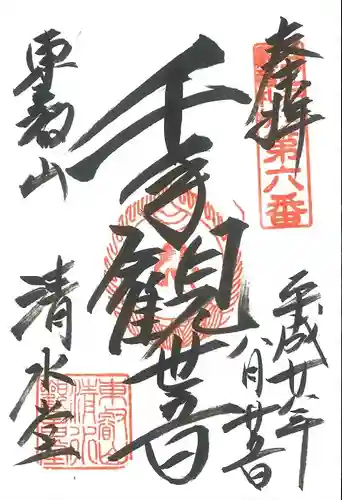 奉拝
第六番
平成廿八年
八月廿五日
千手觀世音
東叡山
清水堂
東叡山
清水